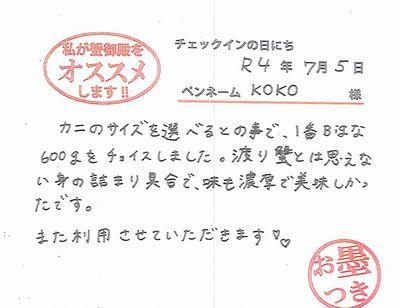 私が蟹御殿を
オススメ
します!!
チェックインの日にち
R4年 7月5日
ペンネーム KOKO 様
カニのサイズを選べるとの事で、1番Bigな
600gをチョイスしました。渡り蟹とは思えな
い身の詰まり具合で、味も濃厚で美味しかっ
たです。
また利用させていただきます♡♡
お墨
つき